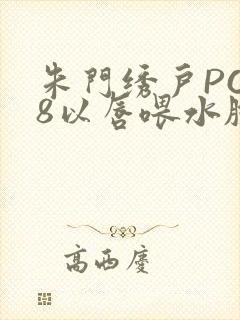 朱門绣戶PO
8以唇喂水脐
高西慶